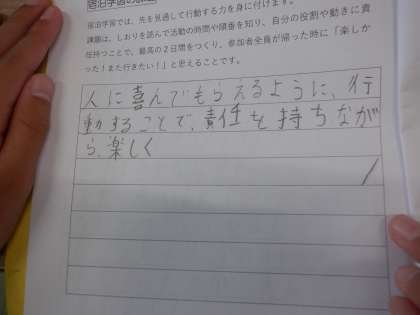 宿泊学習の
宿泊学習では、先を見通して行動する力を身に付けます。
課題は、しおりを読んで活動の時間や順番を知り、自分の役割や動きに責
任持つことで、最高の2日間をつくり、参加者全員が帰った時に「楽しか
った!また行きたい!」と思えることです。
人に喜んでもらえるように、行
動することで、責任を持ちなが
ら、楽しく